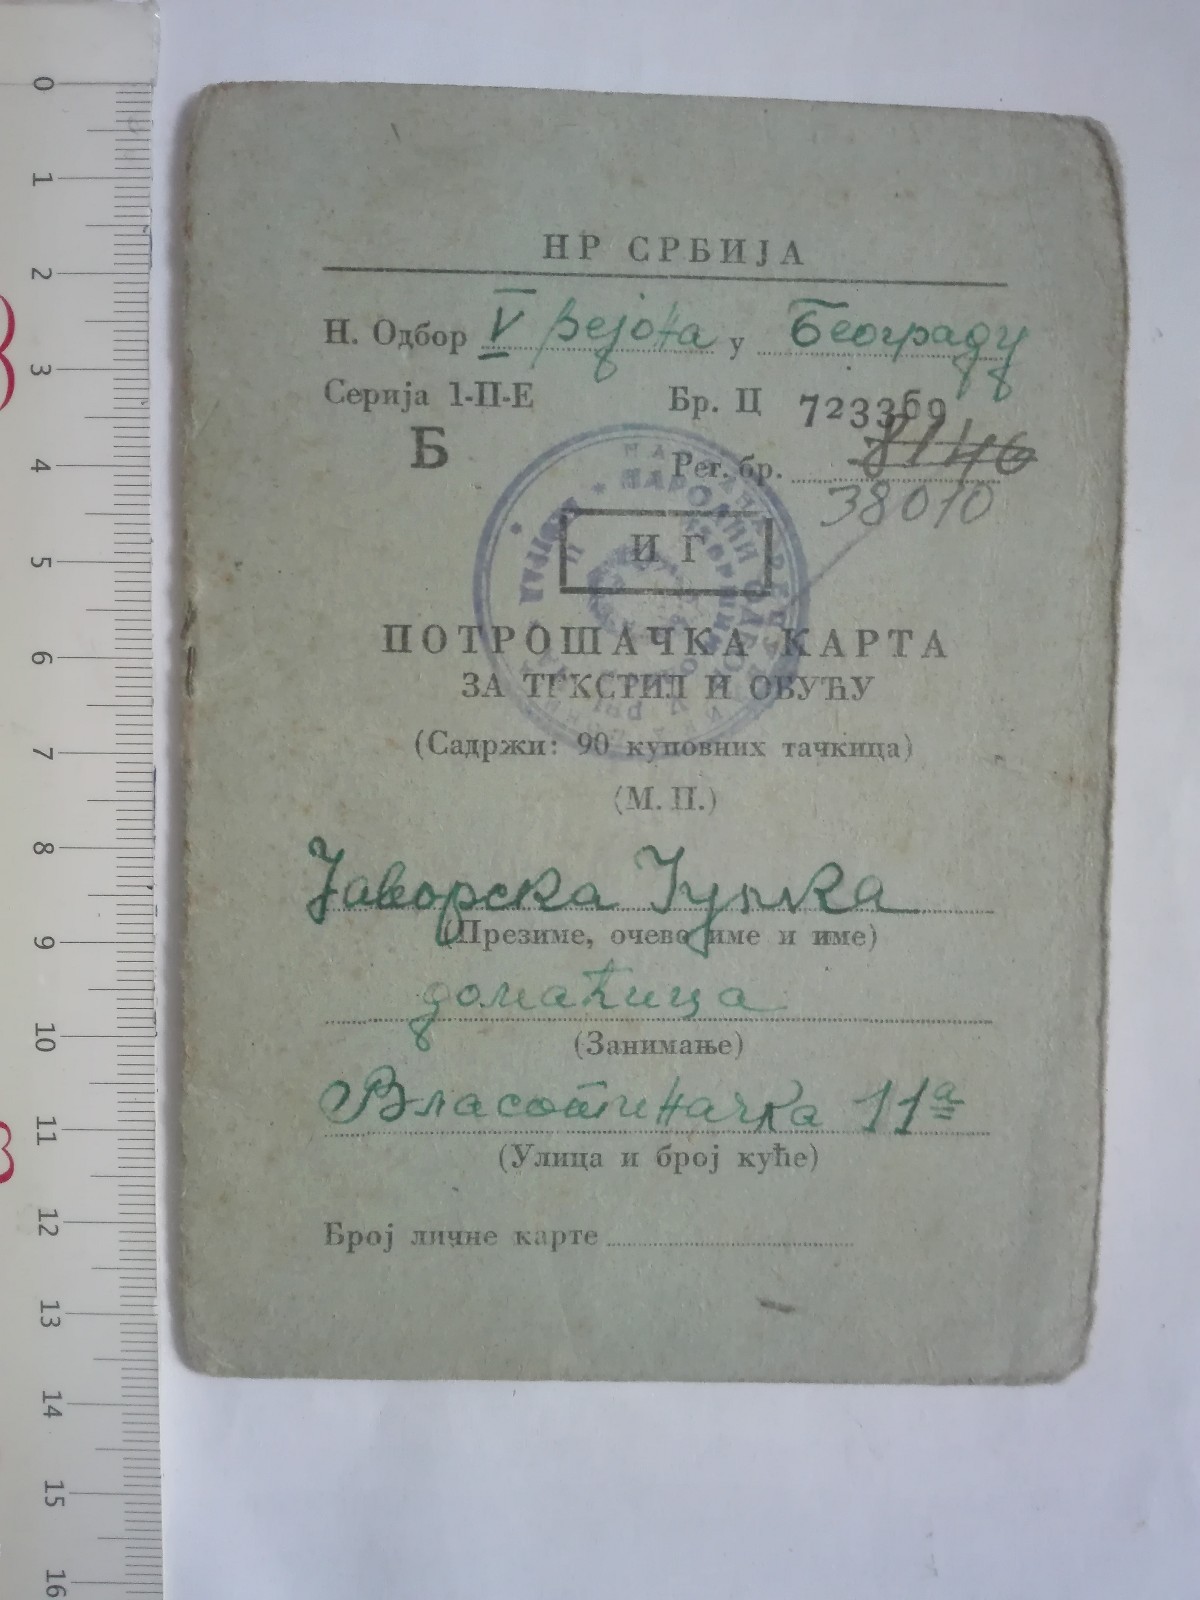 НР СРБИЈА
Н. Одбор V рејона у Београду
Серија 1-П-Е Бр. Ц 723369
Б
Рег. бр. 8146
38010
ИГ
ПОТРОШАЧКА КАРТА
ЗА ТЕКСТИЛ И ОБУЋУ
(Садржи: 90 куповних тачкица)
(М. П.)
Јаворска
(Презиме, очево име и име)
домаћица
(Занимање)
Власотиначка 11а
(Улица и број куће)
Број личне карте
0
1
2
3
4
5
6
7
8
9
10
11
12
13
14
15
16